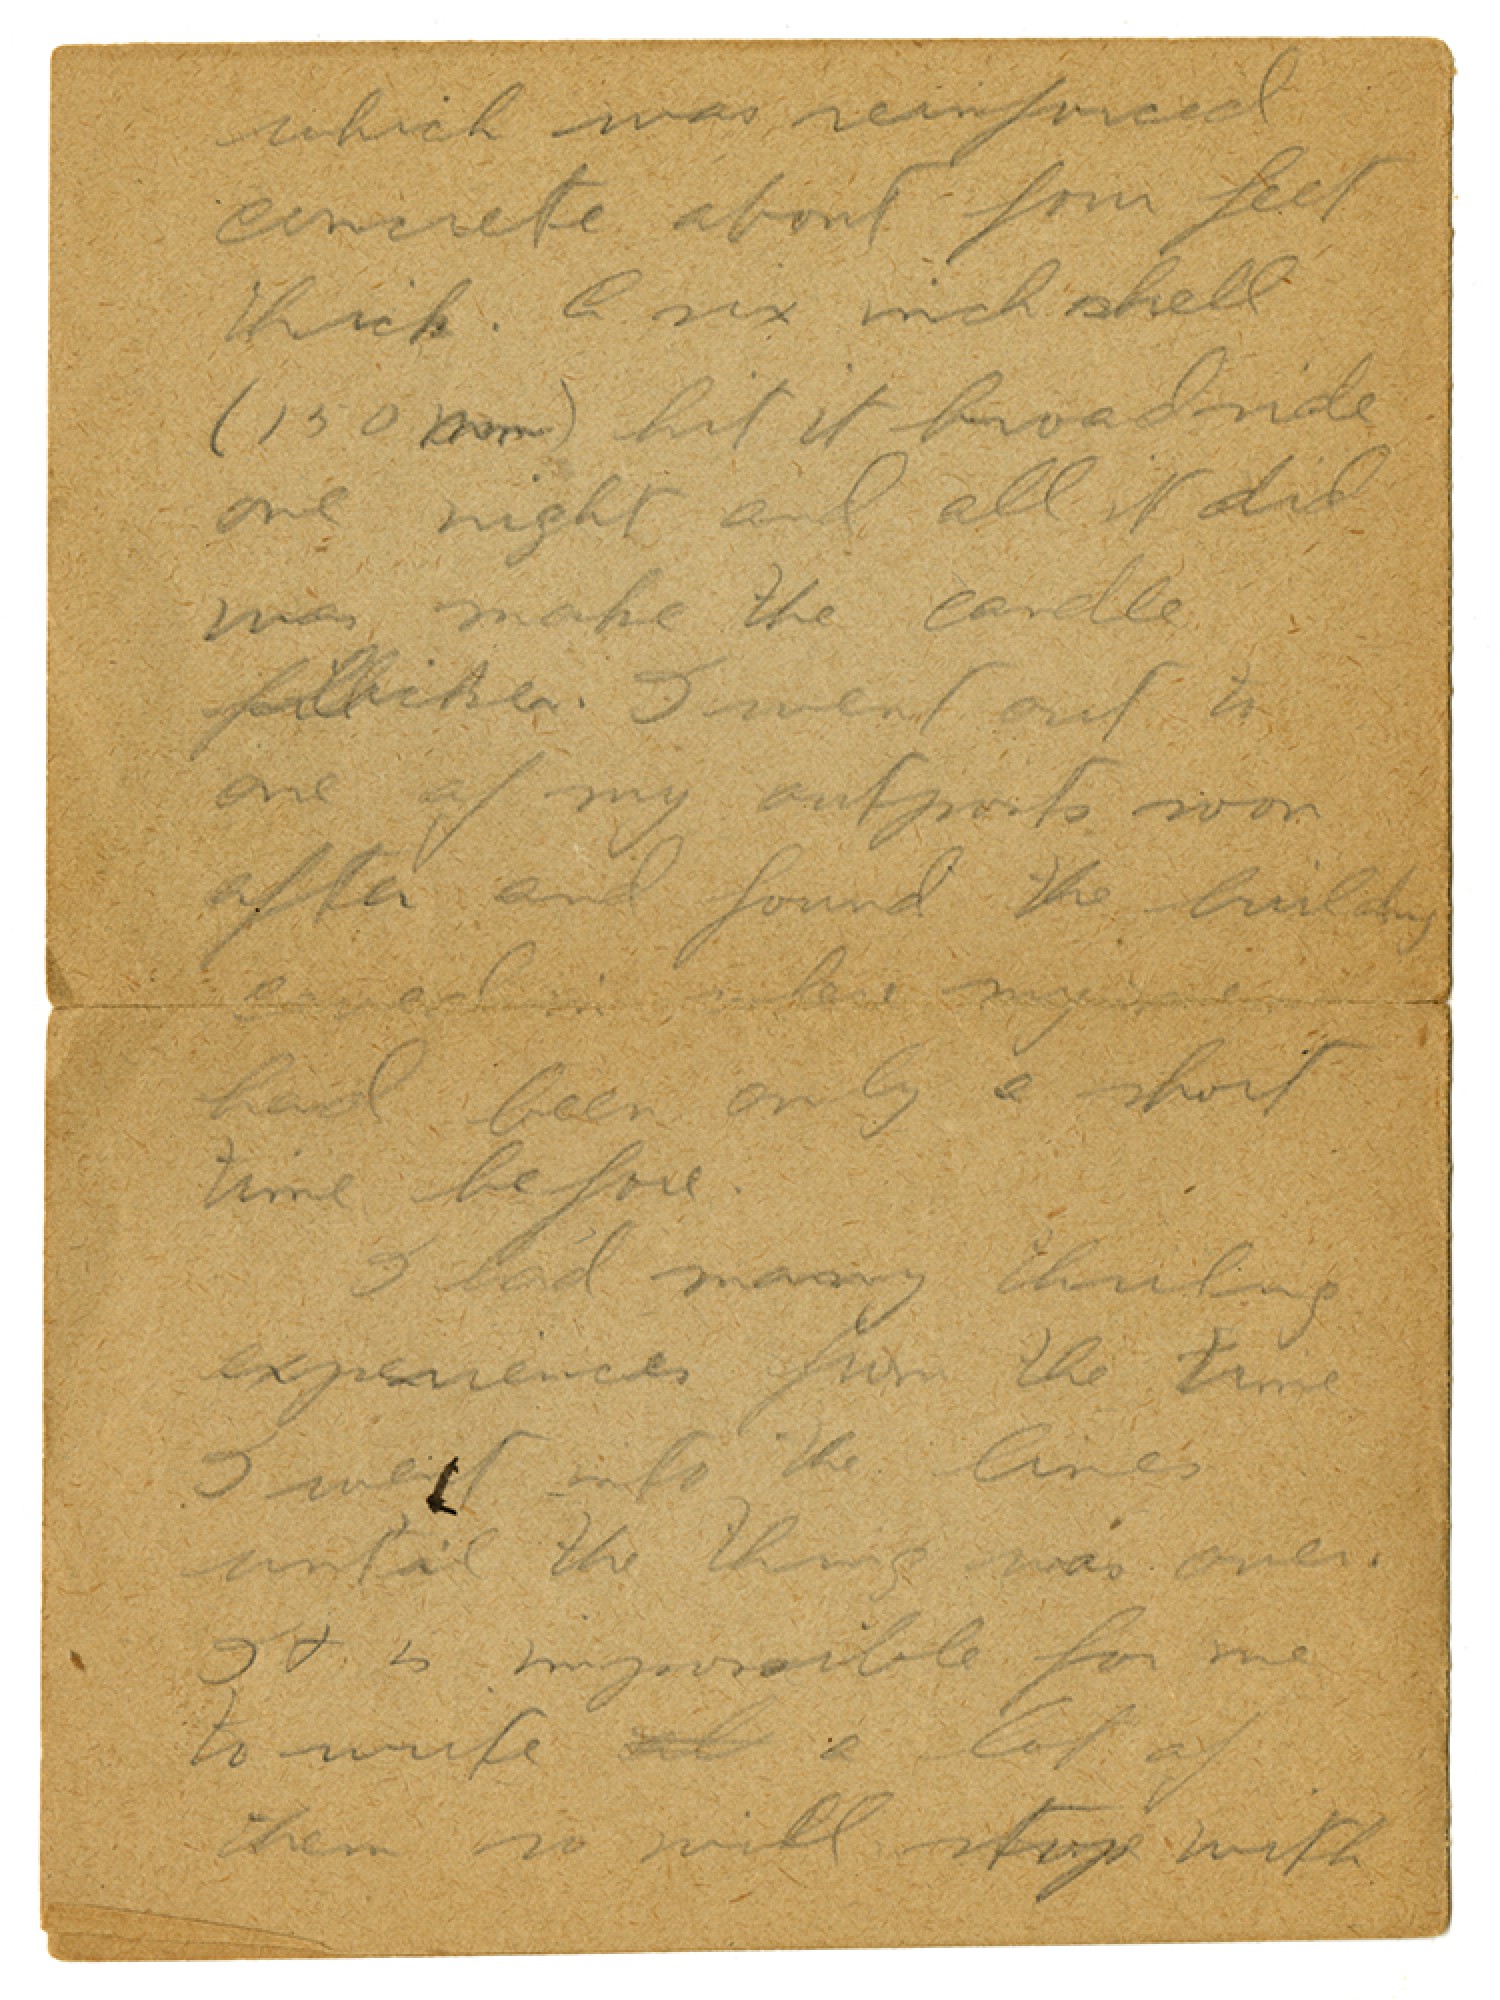 which was reinforced
concrete about four feet
thick. A six inch shell
(150 mm) hit it broadside
one night and all it did
was make the candle
flicker. I went out to
one of my outposts soon
after and found the building
caved in where my men
had been only a short
time before.
I had many thriling
experiences from the time
I went into the lines
until the thing was over.
It is impossible for me
to write a lot of
them so will stop with